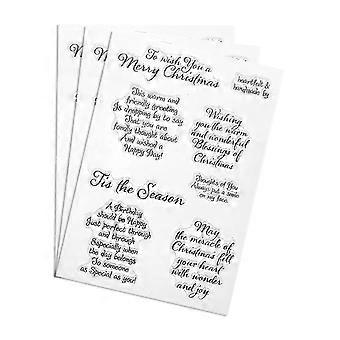 To wish You a
Merry Christmas
heartfelt &
handmade by
This warm and
friendly greeting
Is dropping by to say
That you are
fondly thought about
And wished a
Happy Day!
Wishing
you the warm
and wonderful
Blessings of
Christmas
Thoughts of You
Always put a smile
on my face.
'Tis the Season
A Birthday
should be Happy
Just perfect through
and through
Especially when
the day belongs
To someone
as Special as you!
May
the miracle of
Christmas fill
your heart
with wonder
and joy